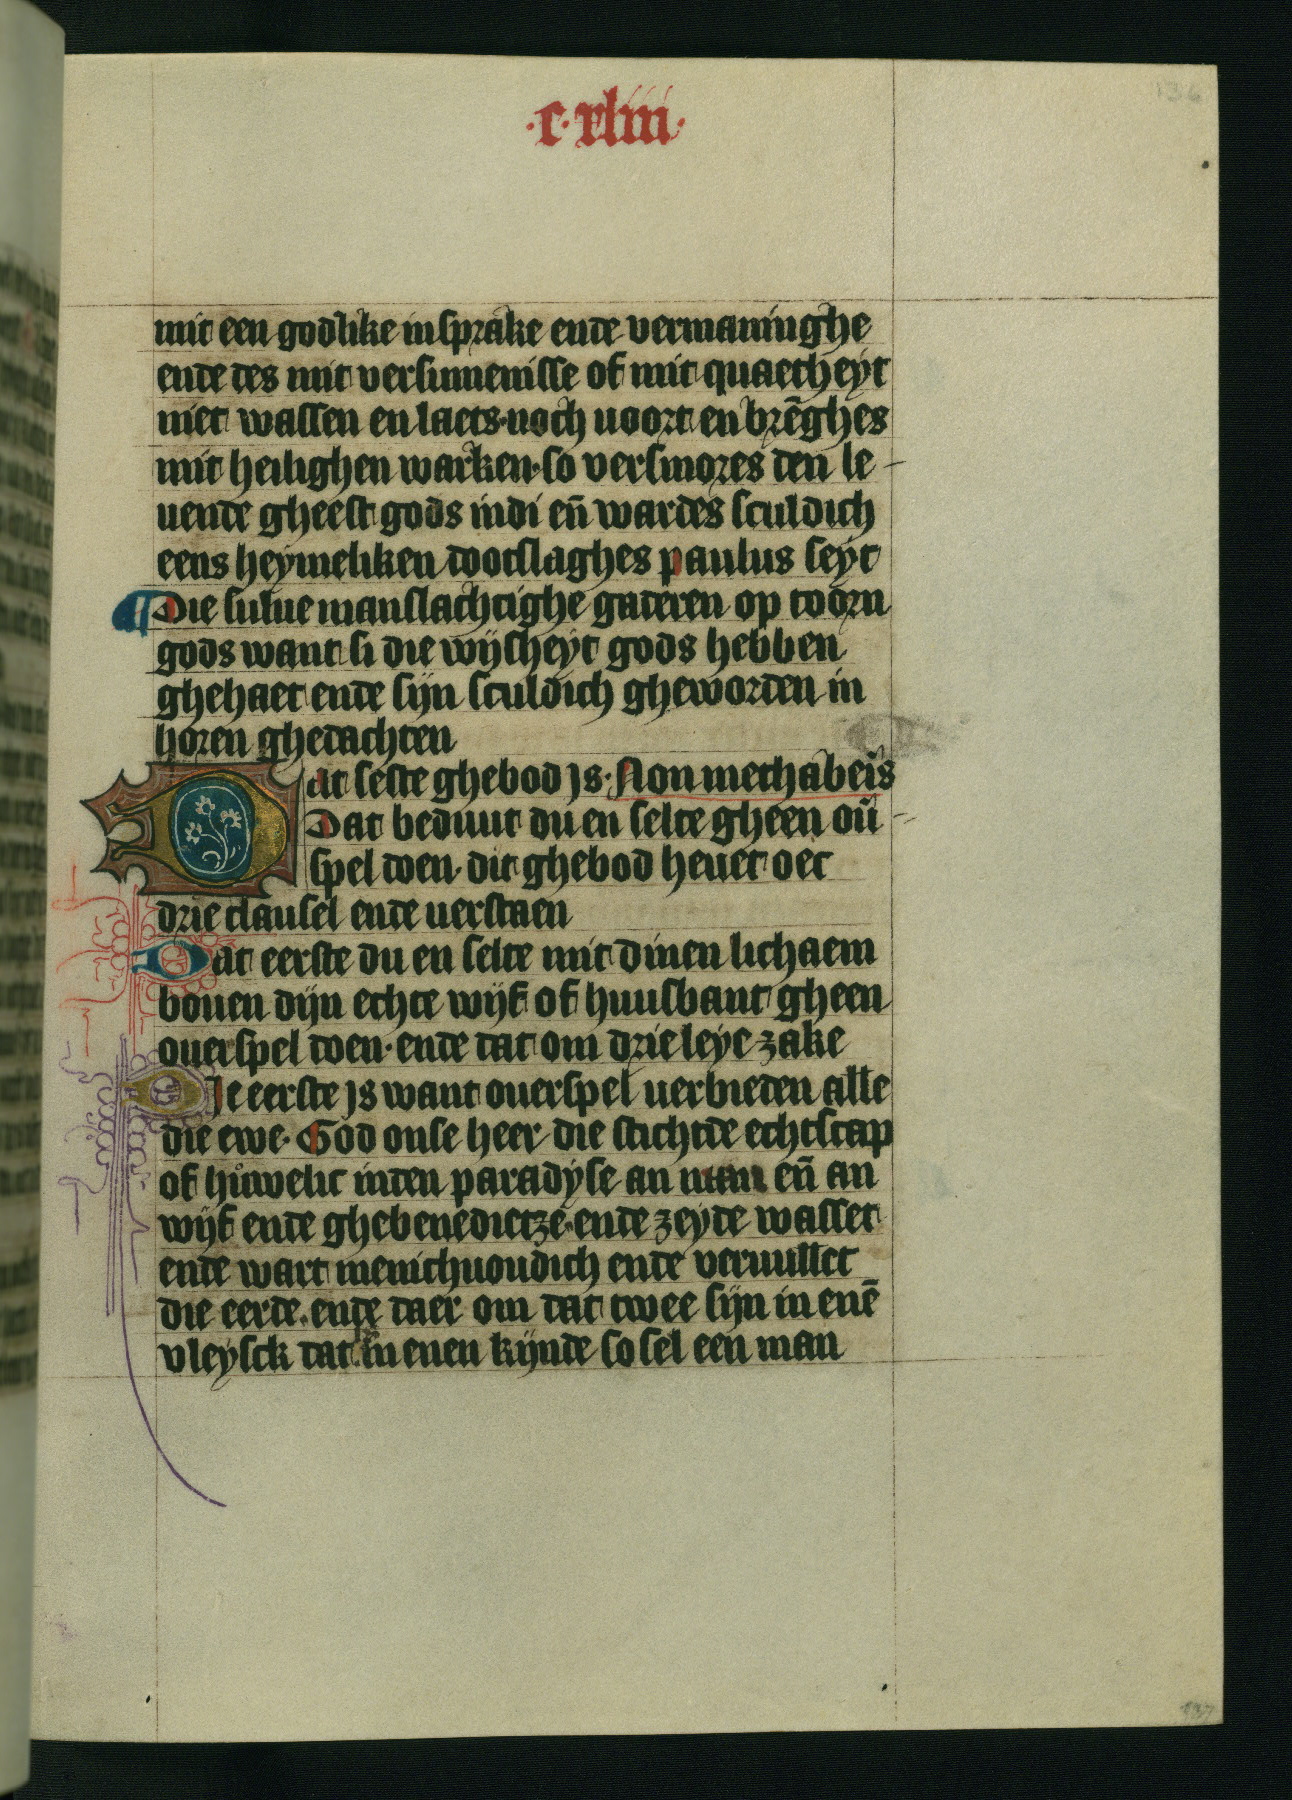 ·c·xliii·
136
mit een godlike insprake ende vermaninghe
ende des mit versumenisse of mit quaetheyt
niet wassen en laets·noch voort en brēghes
mit heilighen warken·so versmores den le-
uende gheest gods in di eñ wardes sculdich
eens heymeliken dootslaghes paulus seyt
Die sulue manslachtighe gaderen op toorn
gods want si die wijsheyt gods hebben
ghehaet ende sijn sculdich gheworden in
horen ghedachten
Dat seste ghebod js·Non mechabeis
Dat beduut du en selte gheen ou-
spel doen·dit ghebod heuet oec
drie clausel ende verstaen
Dat eerste du en selte mit dinen lichaem
bouen dijn echte wijf of huusbant gheen
ouerspel doen·ende dat om drieleye zake
Die eerste js want ouerspel verbieden alle
die ewe·God onse heer die stichtde echtscap
of huwelic inden paradyse an man eñ an
wijf ende ghebenedietze·ende zeyde wasset
ende wart menichuoudich ende veruullet
die eerde·ende daer om dat twee sijn in enē
vleysck dat in enen kijnde so sel een man
137